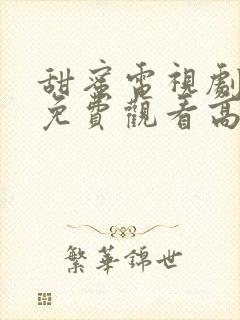 甜蜜電視劇
免費觀看高
繁華錦世